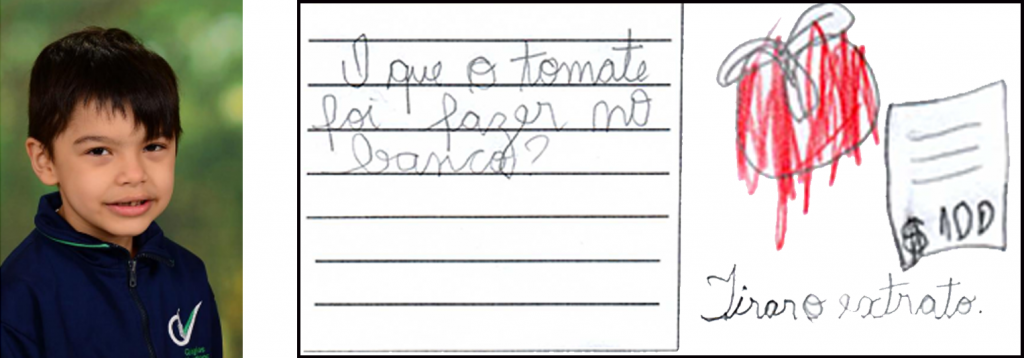 O que o tomate
foi fazer no
banco?
$ 100
Tirar o extrato.